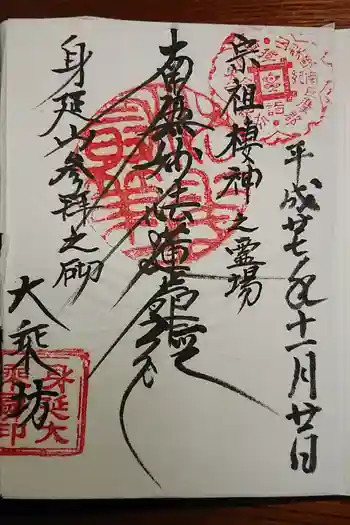 平成廿七年十一月廿日
宗祖棲神之霊場
南無妙法蓮華経
身延山参拜之砌
大乗坊
身延大
乗坊印